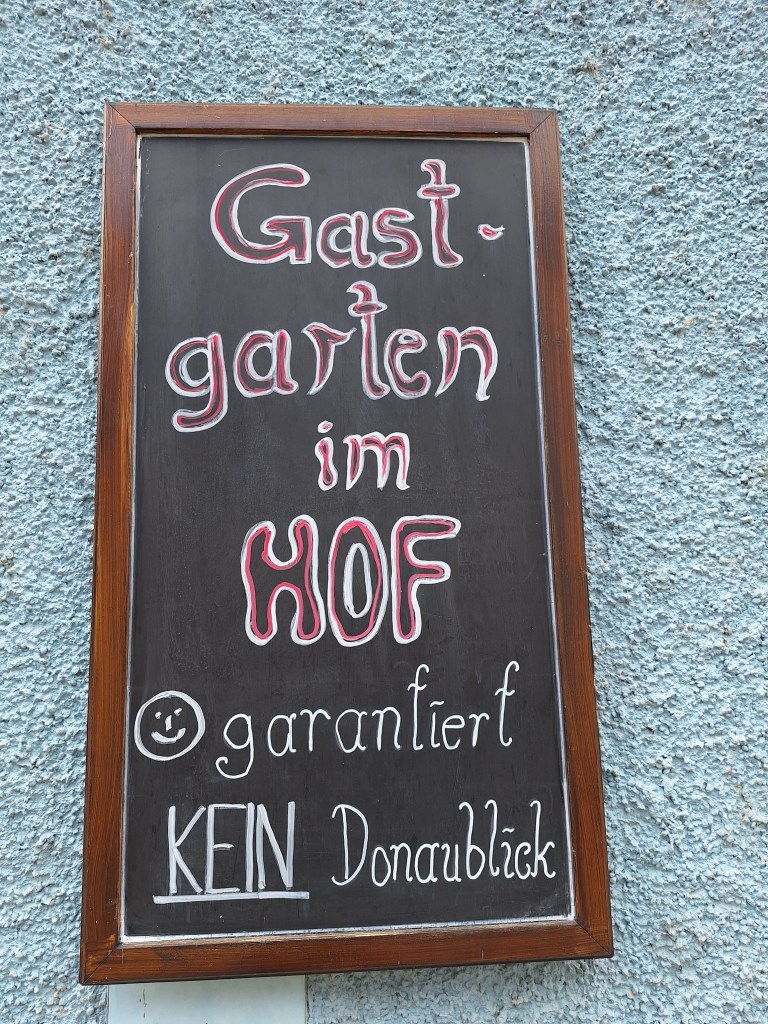 Gast-
garten
im
HOF
garantiert
KEIN Donaublick